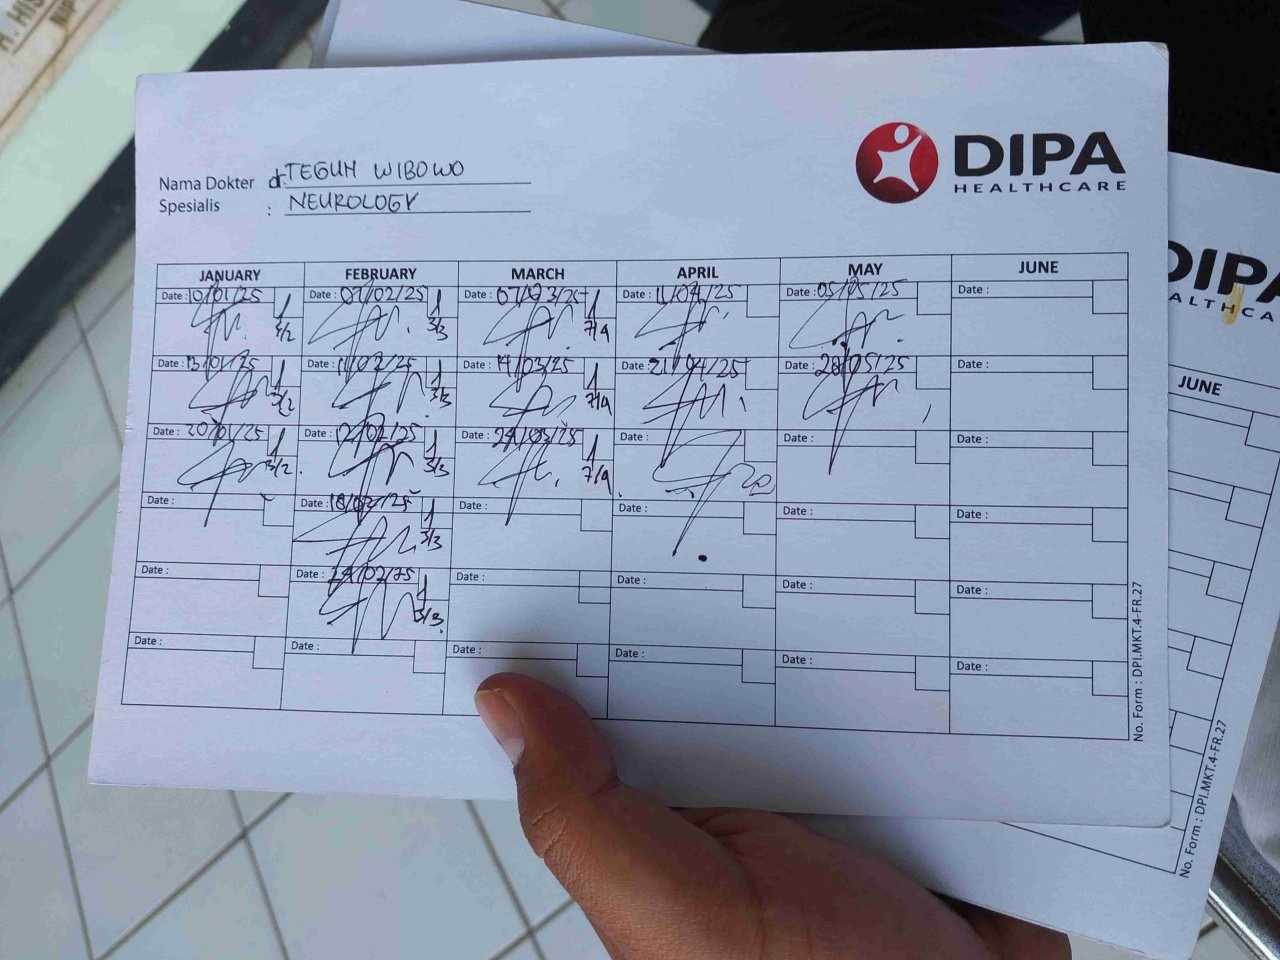 DIPA
HEALTHCARE
Nama Dokter : dr. TEGUH WIBOWO
Spesialis : NEUROLOGY
JANUARY FEBRUARY MARCH APRIL MAY JUNE
Date : 10/01/25 Date : 07/02/25 Date : 07/03/25 Date : 11/04/25 Date : 05/05/25 Date :
3/2 3/3 7/4
Date : 13/01/25 Date : 11/02/25 Date : 14/03/25 Date : 21/04/25 Date : 28/05/25 Date :
3/2 3/3 7/4
Date : 20/01/25 Date : 12/02/25 Date : 24/03/25 Date : Date : Date :
3/2 3/3 7/4
Date : Date : 18/02/25 Date : Date : Date : Date :
3/3
Date : Date : 24/02/25 Date : Date : Date : Date :
3/3
Date : Date : Date : Date : Date : Date :
No. Form : DPI.MKT.4-FR.27
DIPA
ALTHCA
JUNE
No. Form : DPI.MKT.4-FR.27
NIP